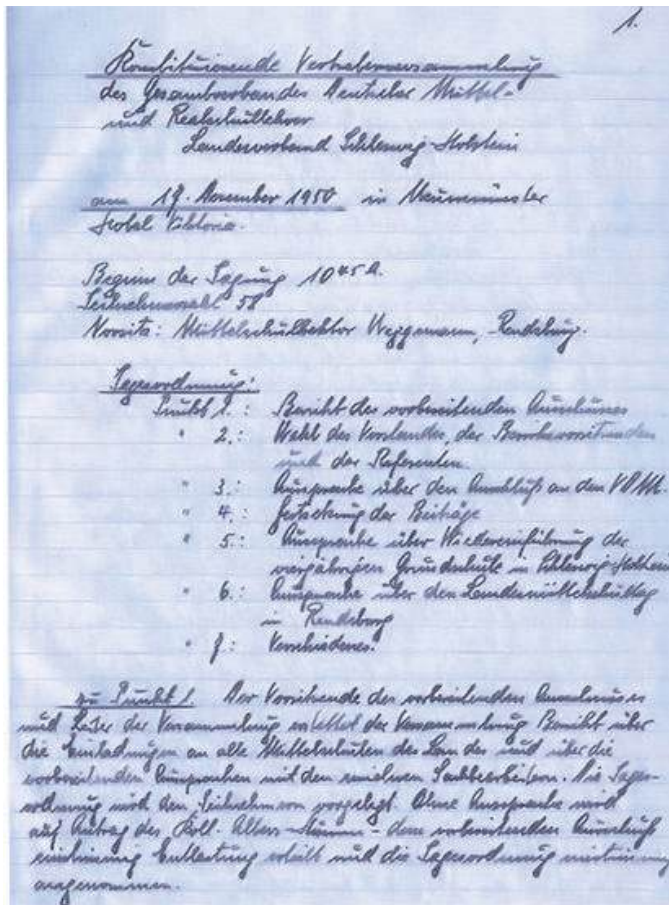 1.
Konstituierende Vertreterversammlung
des Gesamtverbandes Deutscher Mittel-
und Realschullehrer
Landesverband Schleswig-Holstein
am 17. November 1950 in Neumünster
Hotel Viktoria.
Beginn der Tagung 10 45 h.
Teilnehmerzahl 58
Vorsitz: Mittelschulrektor Weggemann, -Rendsburg.
Tagesordnung:
Punkt 1.: Bericht des vorbereitenden Ausschusses
" 2.: Wahl des Vorstandes, der Bezirksvorsitzenden
und der Referenten.
" 3.: Aussprache über den Anschluß an den VDM.
" 4.: Festsetzung der Beiträge
" 5.: Aussprache über Wiedereinführung der
vierjährigen Grundschule in Schleswig-Holstein
" 6.: Aussprache über den Landesmittelschultag
in Rendsburg
" 7.: Verschiedenes.
zu Punkt 1. Der Vorsitzende des vorbereitenden Ausschusses
und Leiter der Versammlung erstattet der Versammlung Bericht über
die Einladungen an alle Mittelschulen des Landes und über die
vorbereitenden Aussprachen mit den einzelnen Sachbearbeitern. Die Tages-
ordnung wird den Teilnehmern vorgelegt. Ohne Aussprache wird
auf Antrag des Koll. dem vorbereitenden Ausschuß
einstimmig Entlastung erteilt und die Tagesordnung einstimmig
angenommen.